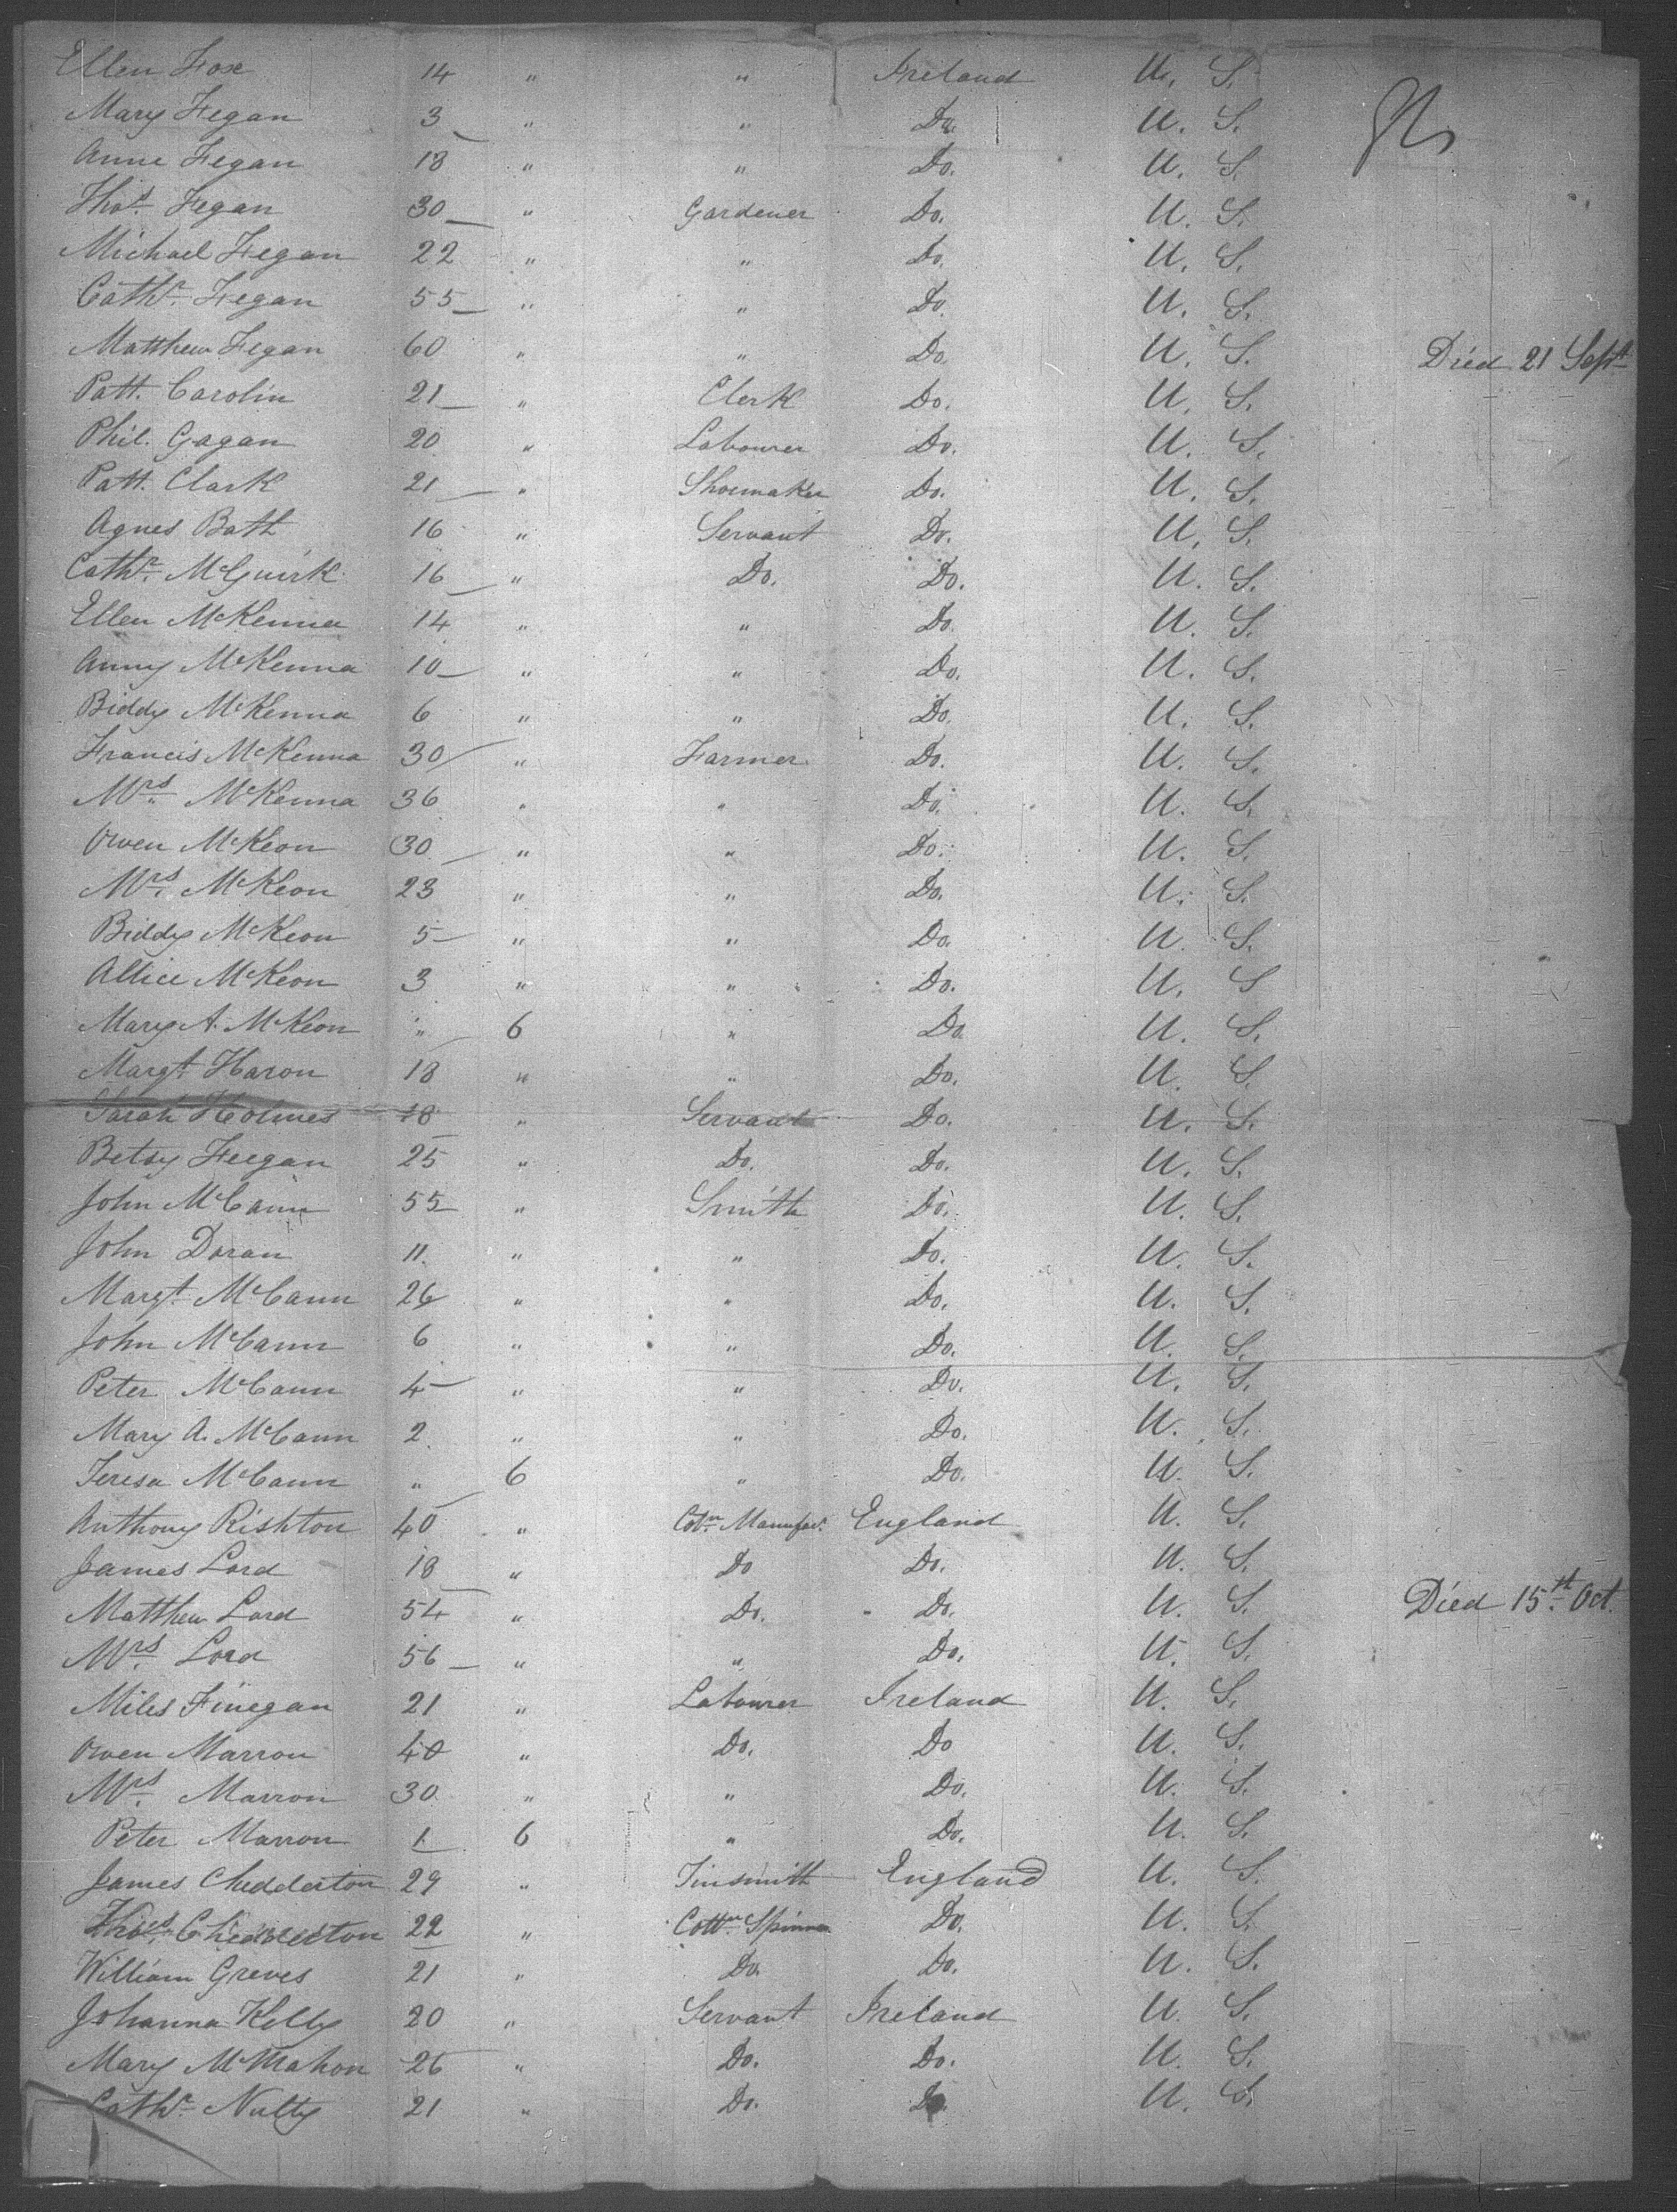 Ellen Fox 14 " " Ireland U. S.
Mary Fegan 3 " " Do. U. S.
Anne Fegan 18 " " Do. U. S.
Thos. Fegan 30 " Gardener Do. U. S.
Michael Fegan 22 " " Do. U. S.
Cathr. Fegan 55 " " Do. U. S.
Matthew Fegan 60 " " Do. U. S. Died 21 Sept
Patt. Carolin 21 " Clerk Do. U. S.
Phil. Gagan 20 " Labourer Do. U. S.
Patt. Clark 21 " Shoemaker Do. U. S.
Agnes Bath 16 " Servant Do. U. S.
Cathr. McGuirk 16 " Do. Do. U. S.
Ellen McKenna 14 " " Do. U. S.
Anny McKenna 10 " " Do. U. S.
Biddy McKenna 6 " " Do. U. S.
Francis McKenna 30 " Farmer Do. U. S.
Mrs. McKenna 36 " " Do. U. S.
Owen McKeon 30 " " Do. U. S.
Mrs. McKeon 23 " " Do. U. S.
Biddy McKeon 5 " " Do. U. S.
Allice McKeon 3 " " Do. U. S
Mary A. McKeon " 6 " Do. U. S.
Margt. Haron 18 " " Do. U. S.
Sarah Holmes 18 " Servant Do. U. S.
Betsy Feegan 25 " Do. Do. U. S.
John McCann 55 " Smith Do. U. S.
John Doran 11 " " Do. U. S.
Margt. McCann 26 " " Do. U. S.
John McCann 6 " " Do. U. S.
Peter McCann 4 " " Do. U. S.
Mary A. McCann 2 " " Do. U. S.
Teresa McCann " 6 " Do. U. S.
Anthony Rishton 40 " Cotn. Manufac. England U. S.
James Lord 18 " Do Do. U. S.
Matthew Lord 54 " Do. Do. U. S. Died 15st. Oct.
Mrs. Lord 56 " " Do. U. S.
Miles Finegan 21 " Labourer Ireland U. S.
Owen Marron 40 " Do. Do U. S.
Mrs. Marron 30 " " Do. U. S.
Peter Marron 1 6 " Do. U. S.
James Chedderton 29 " Tinsmith England U. S.
Thos. Chedderton 22 " Cottn. Spinner Do. U. S.
William Greves 21 " Do. Do. U. S.
Johanna Kelly 20 " Servant Ireland U. S.
Mary McMahon 26 " Do. Do. U. S.
Cathr. Nulty 21 " Do. Do. U. S.